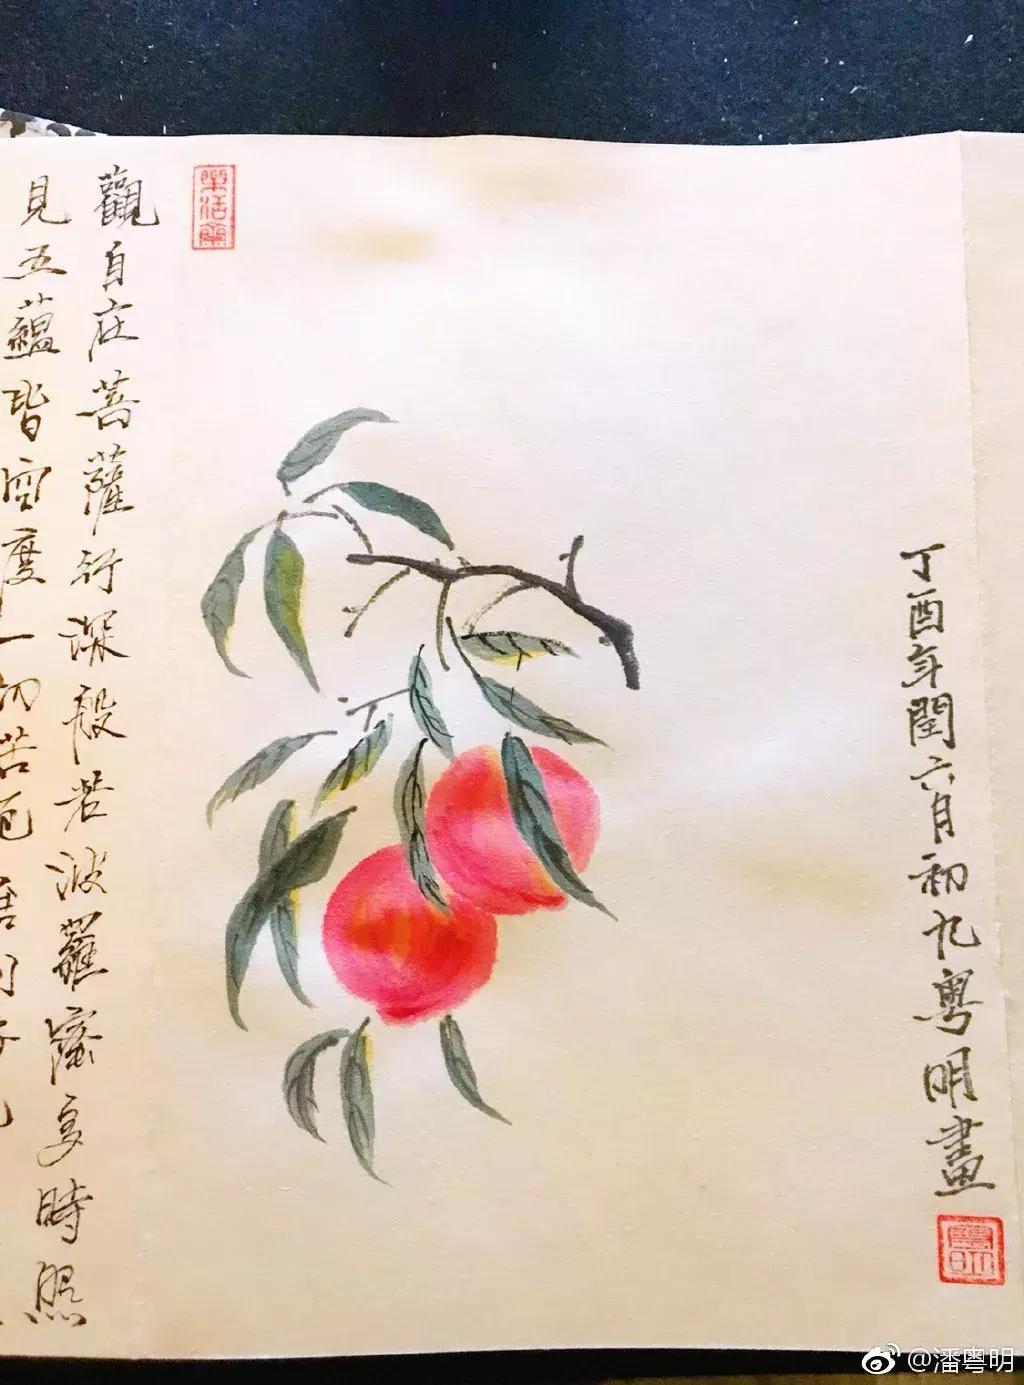 丁酉年閏六月初九粤明畫
樂活齋
觀自在菩薩行深般若波羅蜜多時照
見五蘊皆空度一切苦厄
@潘粤明